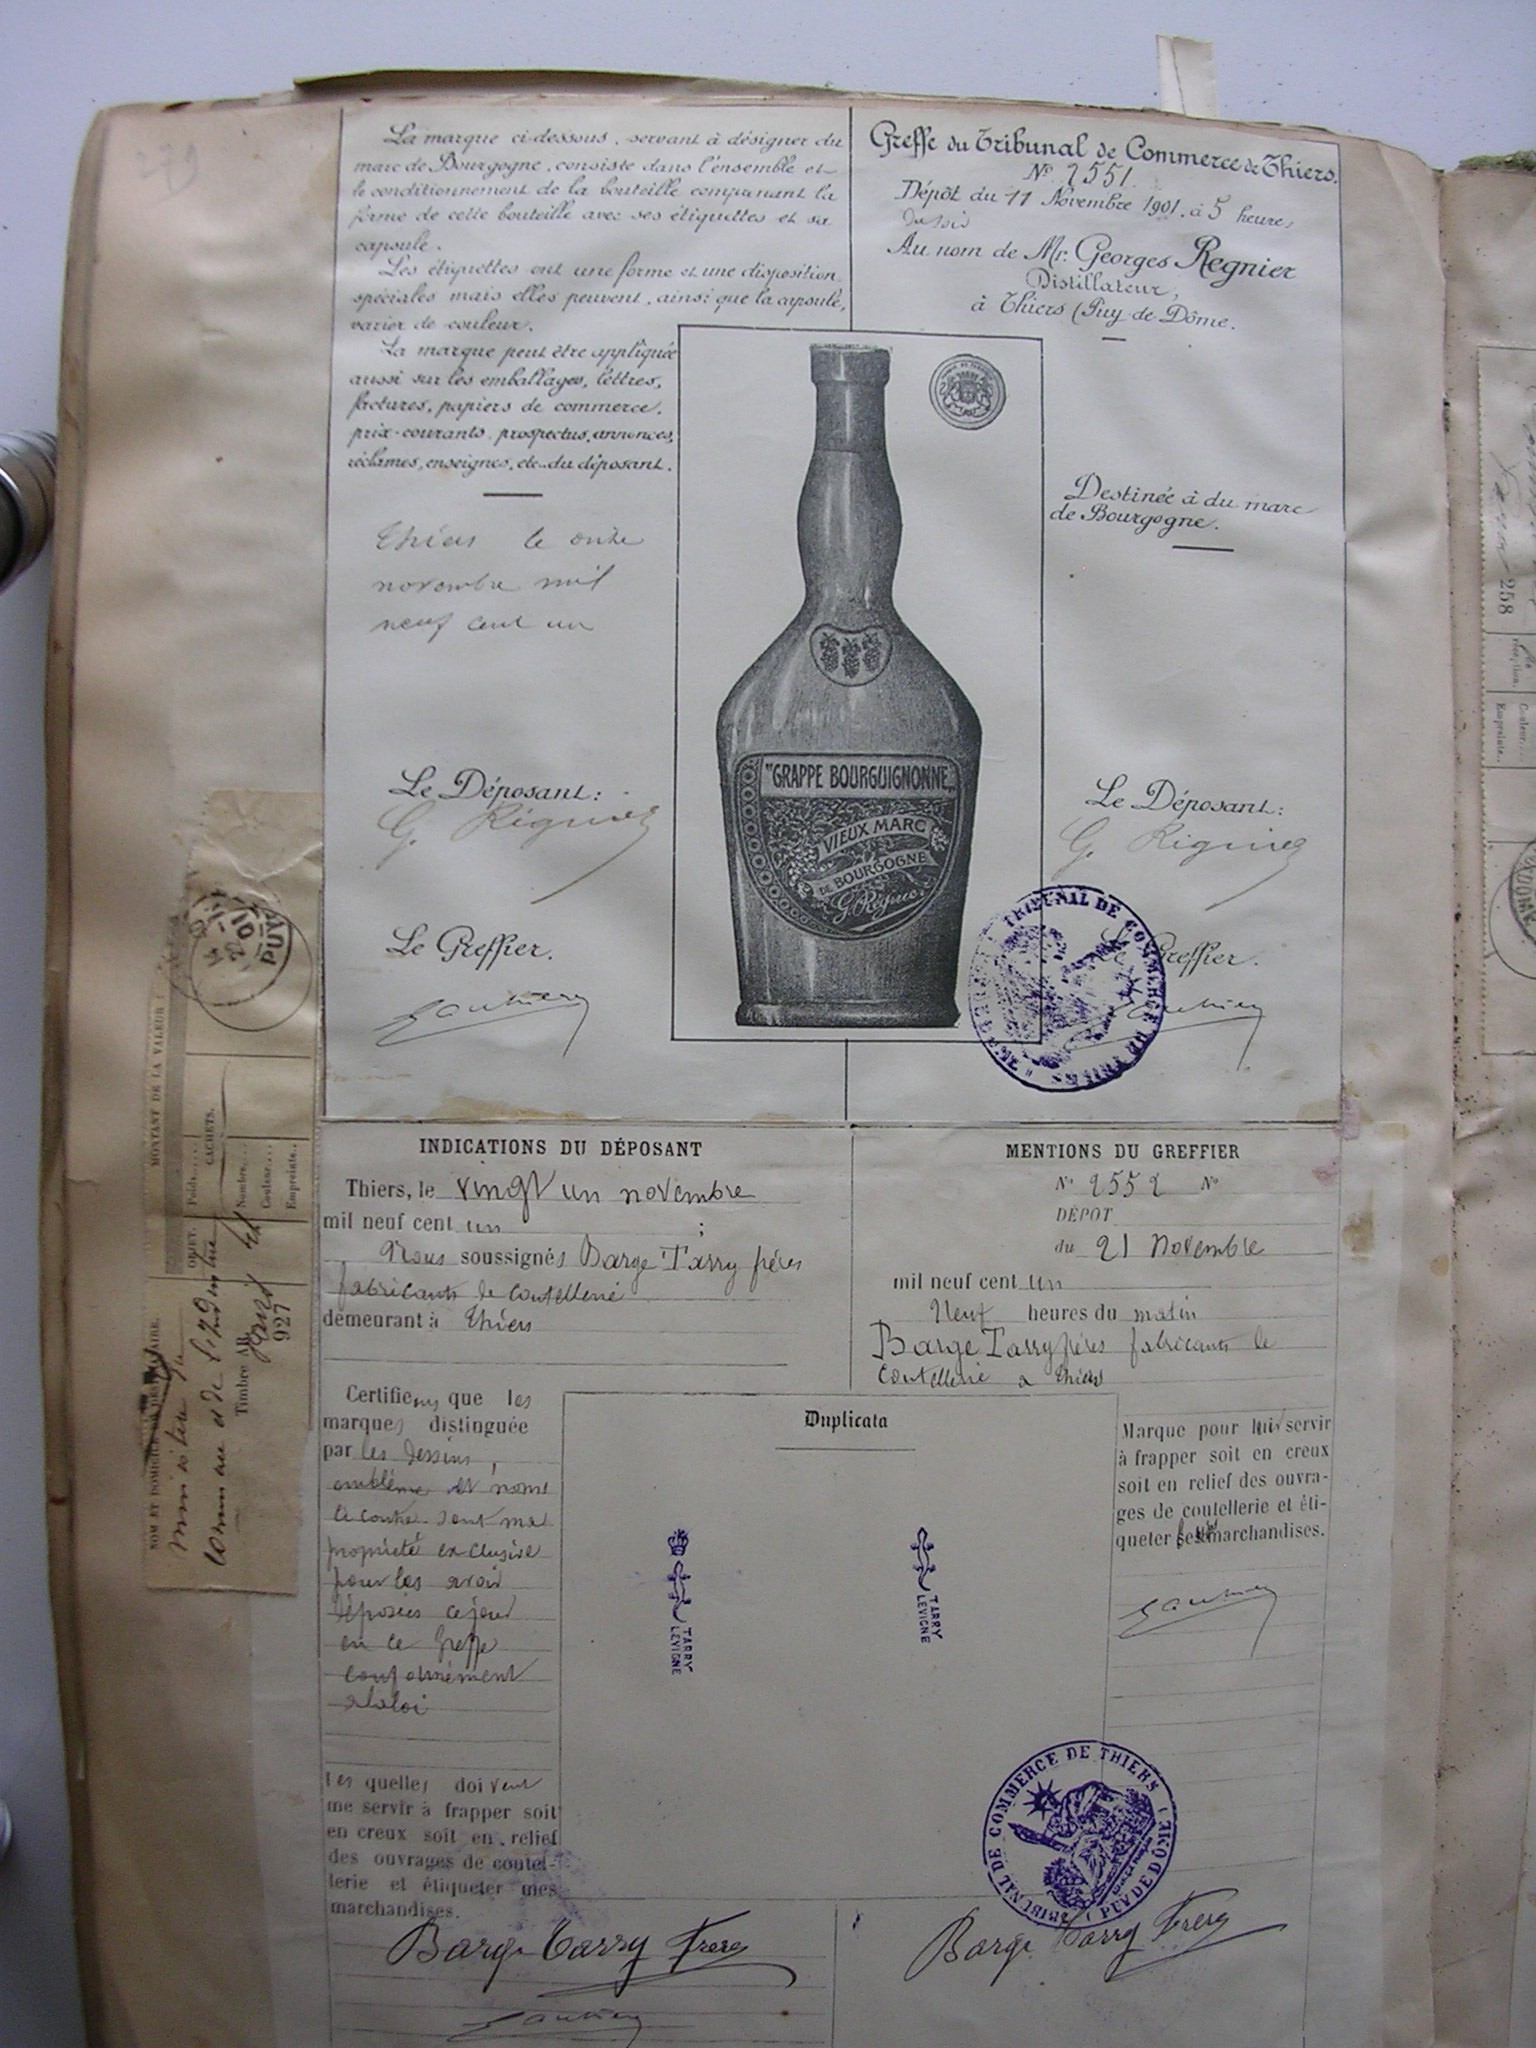 La marque ci-dessous, servant à désigner du
marc de Bourgogne, consiste dans l'ensemble et
le conditionnement de la bouteille comprenant la
forme de cette bouteille avec ses étiquettes et sa
capsule.
Les étiquettes ont une forme et une disposition
spéciales mais elles peuvent, ainsi que la capsule,
varier de couleur.
La marque peut être appliquée
aussi sur les emballages, lettres,
factures, papiers de commerce,
prix-courants, prospectus, annonces,
réclames, enseignes, etc.. du déposant.
Thiers le onze
novembre mil
neuf cent un
Le Déposant:
G. Régnier
Le Greffier.
Gauthier
Greffe du Tribunal de Commerce de Thiers.
N° 2551.
Dépôt du 11 Novembre 1901, à 5 heures
du soir
Au nom de Mr. Georges Regnier
Distillateur,
à Thiers (Puy de Dôme.
Destinée à du marc
de Bourgogne.
"GRAPPE BOURGUIGNONNE"
VIEUX MARC
DE BOURGOGNE
G. Régnier
Le Déposant:
G. Régnier
Le Greffier.
Gauthier
TRIBUNAL DE COMMERCE DE THIERS
INDICATIONS DU DÉPOSANT
Thiers, le vingt un novembre
mil neuf cent un ;
Nous soussignés Barge Tarry frères
fabricants de coutellerie
demeurant à Thiers
Certifions que les
marques distinguée
par les dessins,
emblème et noms
ci contre sont ma
propriété exclusive
pour les avoir
déposées ce jour
en ce Greffe
conformément
a la loi
les quelles doivent
me servir à frapper soit
en creux soit en relief
des ouvrages de coutel-
lerie et étiqueter mes
marchandises.
Barge Tarry Frères
Gauthier
MENTIONS DU GREFFIER
N° 2552 N°
DÉPÔT
du 21 Novembre
mil neuf cent un
Neuf heures du matin
Barge Tarry frères fabricants de
coutellerie a Thiers
Duplicata
TARRY
LEVIGNE
TARRY
LEVIGNE
Marque pour lui servir
à frapper soit en creux
soit en relief des ouvra-
ges de coutellerie et éti-
queter marchandises.
Gauthier
TRIBUNAL DE COMMERCE DE THIERS (PUY DE DÔME)
Barge Tarry Frères
MONTANT DE LA VALEUR :
CACHETS.
Poids
Nombre
Couleur
Empreinte
OBJET.
NOM ET DOMICILE DU DESTINATAIRE.
ministere du
commerce et de l'Industrie
Timbre AR
927
PUY
10
258
Couleur
Empreinte